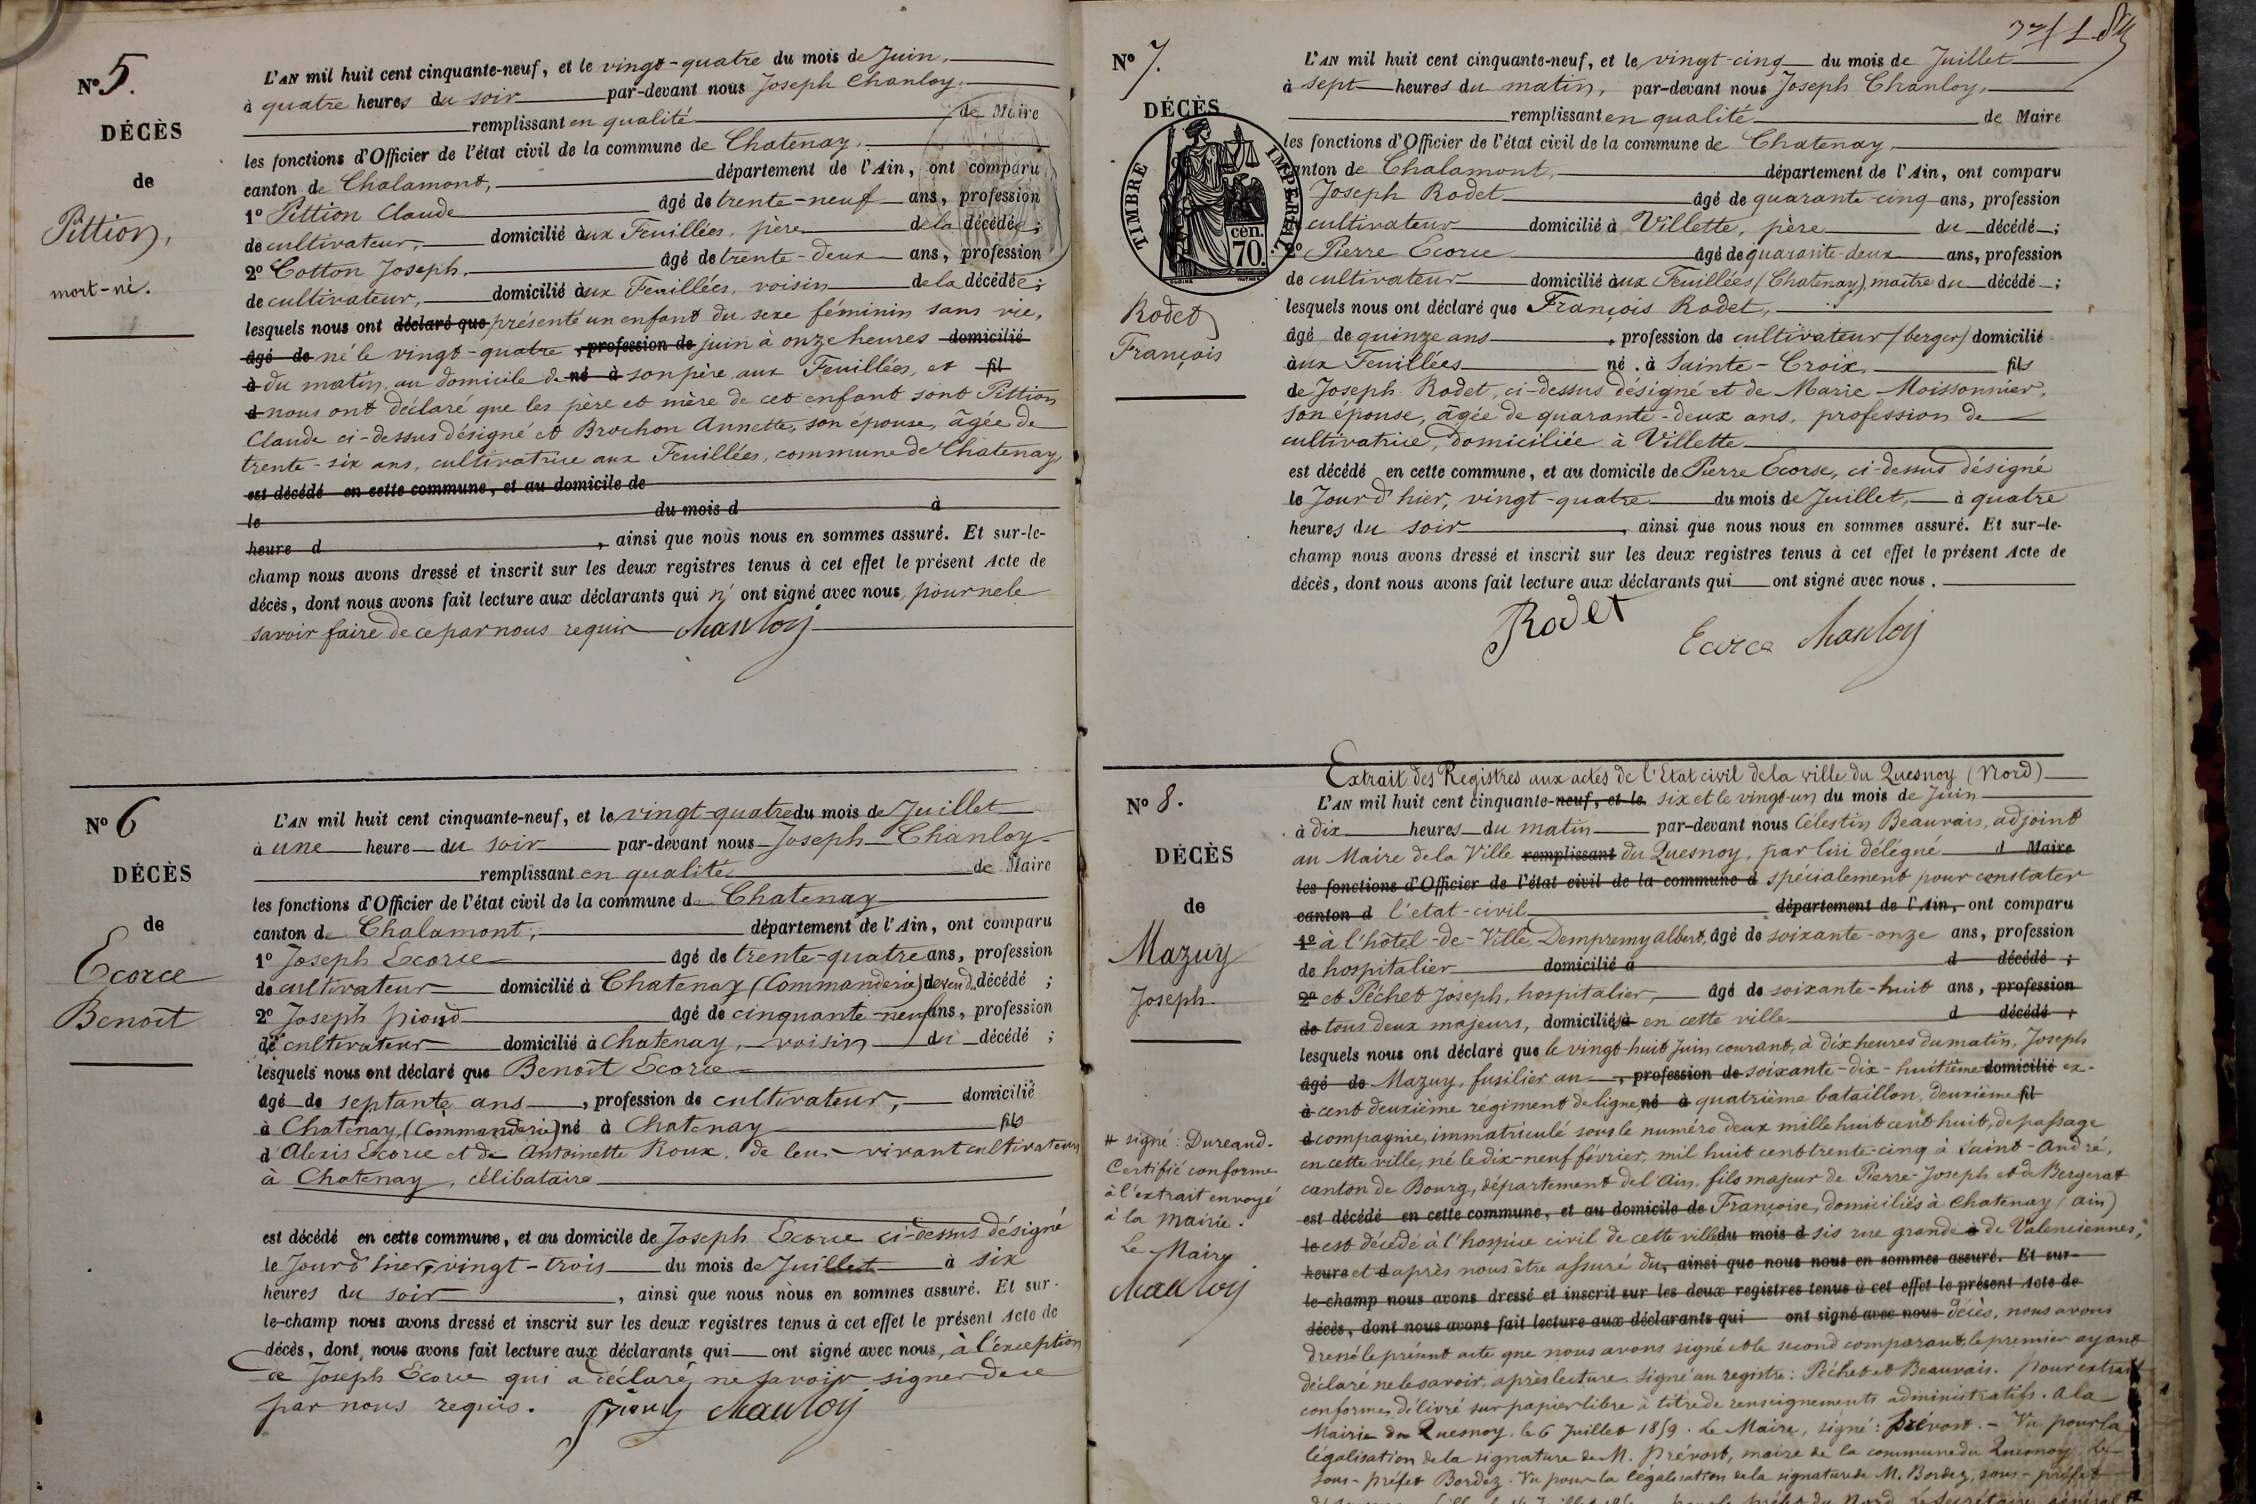 N° 5.
DÉCÈS
de
Pittion,
mort-né.
L'AN mil huit cent cinquante-neuf, et le vingt-quatre du mois de Juin,
à quatre heures du soir par-devant nous Joseph Chanloy,
remplissant en qualité de Maire
les fonctions d'Officier de l'état civil de la commune de Chatenay,
canton de Chalamont, département de l'Ain, ont comparu
1° Pittion Claude âgé de trente-neuf ans, profession
de cultivateur, domicilié aux Feuillées, père de la décédée;
2° Cotton Joseph, âgé de trente-deux ans, profession
de cultivateur, domicilié aux Feuillées, voisin de la décédée;
lesquels nous ont déclaré que présenté un enfant du sexe féminin sans vie,
âgé de né le vingt-quatre, profession de juin à onze heures domicilié
à du matin, au domicile de né à son père, aux Feuillées, et fil
d nous ont déclaré que les père et mère de cet enfant sont Pittion
Claude ci-dessus désigné et Brochon Annette, son épouse, âgée de
trente-six ans, cultivatrice aux Feuillées, commune de Chatenay,
est décédé en cette commune, et au domicile de
le du mois d à
heure d , ainsi que nous nous en sommes assuré. Et sur-le-
champ nous avons dressé et inscrit sur les deux registres tenus à cet effet le présent Acte de
décès, dont nous avons fait lecture aux déclarants qui n'ont signé avec nous, pour ne le
savoir faire de ce par nous requis Chanloy
N° 6
DÉCÈS
de
Ecorce
Benoît
L'AN mil huit cent cinquante-neuf, et le vingt-quatre du mois de Juillet
à une heure du soir par-devant nous Joseph Chanloy
remplissant en qualité de Maire
les fonctions d'Officier de l'état civil de la commune de Chatenay
canton de Chalamont, département de l'Ain, ont comparu
1° Joseph Ecorce âgé de trente-quatre ans, profession
de cultivateur domicilié à Chatenay (Commanderie) décédé ;
2° Joseph âgé de cinquante-neuf ans, profession
de cultivateur domicilié à Chatenay, voisin du décédé ;
lesquels nous ont déclaré que Benoît Ecorce
âgé de septante ans, profession de cultivateur, domicilié
à Chatenay, (Commanderie) né à Chatenay fils
d'Alexis Ecorce et de Antoinette Roux, de leur vivant cultivateurs
à Chatenay, célibataire
est décédé en cette commune, et au domicile de Joseph Ecorce ci-dessus désigné
le Jourd'hier, vingt-trois du mois de Juillet à six
heures du soir, ainsi que nous nous en sommes assuré. Et sur-
le-champ nous avons dressé et inscrit sur les deux registres tenus à cet effet le présent Acte de
décès, dont nous avons fait lecture aux déclarants qui ont signé avec nous, à l'exception
de Joseph Ecorce qui a déclaré ne savoir signer de ce
par nous requis. Chanloy
N° 7.
DÉCÈS
TIMBRE IMPÉRIAL
70 cen.
Rodet
François
L'AN mil huit cent cinquante-neuf, et le vingt-cinq du mois de Juillet
à sept heures du matin, par-devant nous Joseph Chanloy,
remplissant en qualité de Maire
les fonctions d'Officier de l'état civil de la commune de Chatenay
canton de Chalamont, département de l'Ain, ont comparu
Joseph Rodet âgé de quarante-cinq ans, profession
cultivateur domicilié à Villette, père du décédé;
2° Pierre Ecorce âgé de quarante-deux ans, profession
de cultivateur domicilié aux Feuillées (Chatenay), maître du décédé;
lesquels nous ont déclaré que François Rodet,
âgé de quinze ans, profession de cultivateur (berger) domicilié
aux Feuillées né à Sainte-Croix, fils
de Joseph Rodet, ci-dessus désigné et de Marie Moissonnier,
son épouse, âgée de quarante-deux ans, profession de
cultivatrice, domiciliée à Villette
est décédé en cette commune, et au domicile de Pierre Ecorce, ci-dessus désigné
le Jourd'hier, vingt-quatre du mois de Juillet, à quatre
heures du soir, ainsi que nous nous en sommes assuré. Et sur-le-
champ nous avons dressé et inscrit sur les deux registres tenus à cet effet le présent Acte de
décès, dont nous avons fait lecture aux déclarants qui ont signé avec nous.
Rodet
Ecorce Chanloy
N° 8.
DÉCÈS
de
Mazuy
Joseph
# signé: Dureand.
Certifié conforme
à l'extrait envoyé
à la Mairie.
Le Maire
Chanloy
Extrait des Registres aux actes de l'Etat civil de la ville du Quesnoy (Nord)
L'AN mil huit cent cinquante-neuf, et le six et le vingt-un du mois de Juin
à dix heures du matin par-devant nous Célestin Beauvais, adjoint
au Maire de la Ville remplissant du Quesnoy, par lui délégué d Maire
les fonctions d'Officier de l'état civil de la commune d spécialement pour constater
canton d l'état-civil département de l'Ain, ont comparu
1° à l'hôtel-de-Ville Dempremy albert, âgé de soixante-onze ans, profession
de hospitalier domicilié à d décédé ;
2° et Péchet Joseph, hospitalier, âgé de soixante-huit ans, profession
de tous deux majeurs, domiciliés à en cette ville d décédé ;
lesquels nous ont déclaré que le vingt-huit Juin courant, à dix heures du matin, Joseph
âgé de Mazuy, fusilier au, profession de soixante-dix-huitième domicilié ex-
à cent deuxième régiment de ligne né à quatrième bataillon, deuxième fil
d compagnie, immatriculé sous le numéro deux mille huit cent huit, de passage
en cette ville, né le dix-neuf février, mil huit cent trente-cinq à Saint-André,
canton de Bourg, département de l'Ain, fils majeur de Pierre-Joseph et de Bergerat
est décédé en cette commune, et au domicile de Françoise, domiciliés à Chatenay (Ain)
le est décédé à l'hospice civil de cette ville du mois d sis rue grande à de Valenciennes,
heure et d après nous être assuré du, ainsi que nous nous en sommes assuré. Et sur-
le-champ nous avons dressé et inscrit sur les deux registres tenus à cet effet le présent Acte de
décès, dont nous avons fait lecture aux déclarants qui ont signé avec nous décès, nous avons
dressé le présent acte que nous avons signé et le second comparant, le premier ayant
déclaré ne le savoir, après lecture. Signé au registre: Péchet et Beauvais. pour extrait
conforme, délivré sur papier libre à titre de renseignements administratifs. A la
Mairie du Quesnoy, le 6 Juillet 1859. Le Maire, signé: Prévost. - Vu pour la
légalisation de la signature de M. Prévost, maire de la commune du Quesnoy, Le
sous-préfet Bordez. Vu pour la légalisation de la signature de M. Bordez, sous-préfet